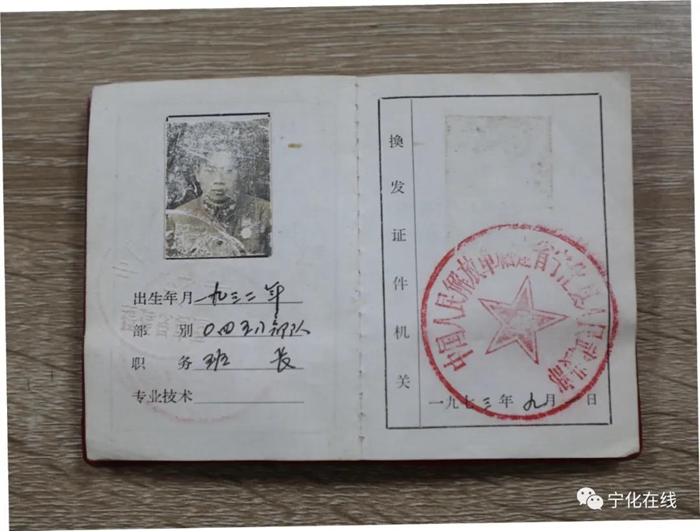 出生年月 一九三二年
部别 〇四五八部队
职务 班长
专业技术
换发证件机关
中国人民解放军福建省宁化县人民武装部
一九七三年九月一日
宁化在线